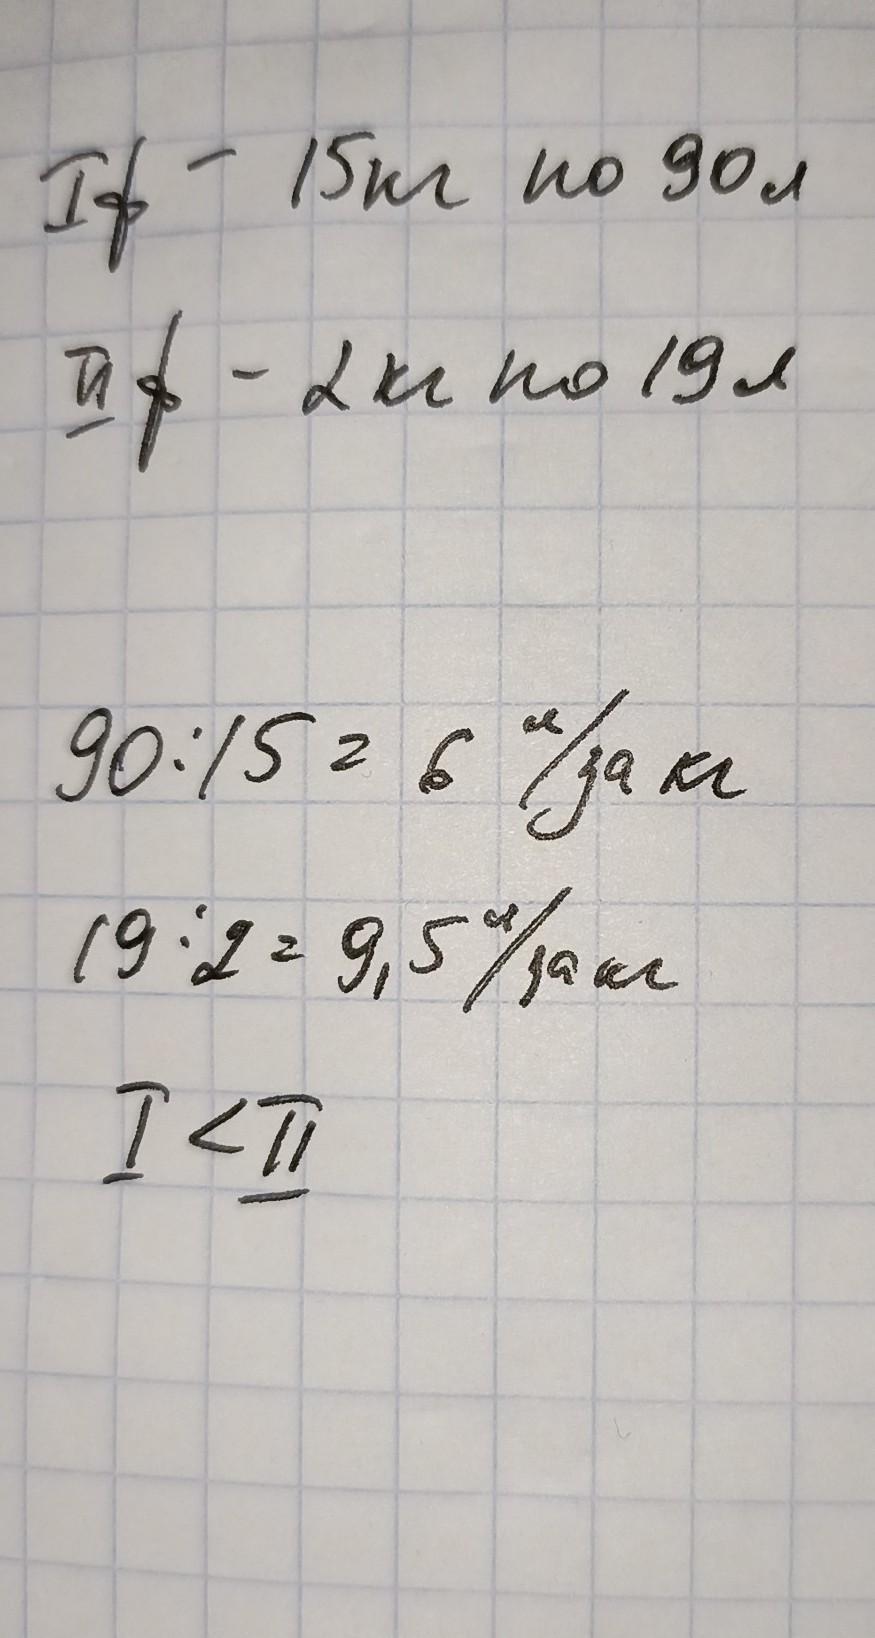 Iф - 15кг по 90л
IIф - 2кг по 19л
90:15 = 6 л/за кг
19:2 = 9,5 л/за кг
I < II